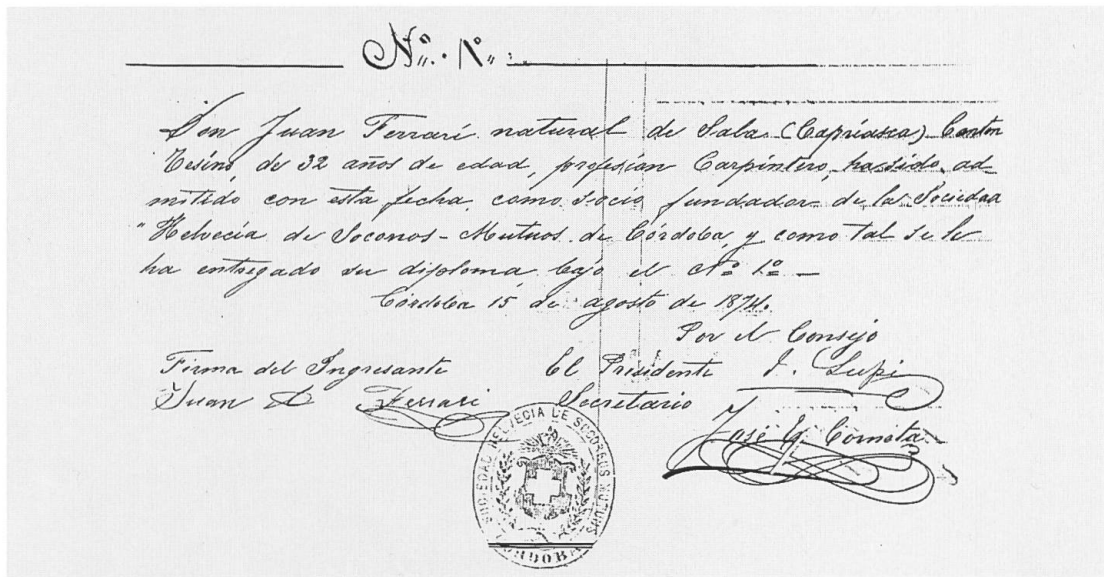 Nº. 1º.
Don Juan Ferrari natural de Sala (Capriasca) Canton
Tesino, de 32 años de edad, profesian Carpintero, ha sido ad
mitido con esta fecha, como socio fundador de la Sociedad
"Helvecia de Socorros-Mutuos de Córdoba, y como tal se le
ha entregado su diploma bajo el Nº 1º —
Córdoba 15 de agosto de 1874.
Por el Consejo
Firma del Ingresante El Presidente J. Lupi
Juan Ferrari Secretario
José G. Cometta
SOCIEDAD HELVECIA DE SOCORROS MUTUOS
CORDOBA